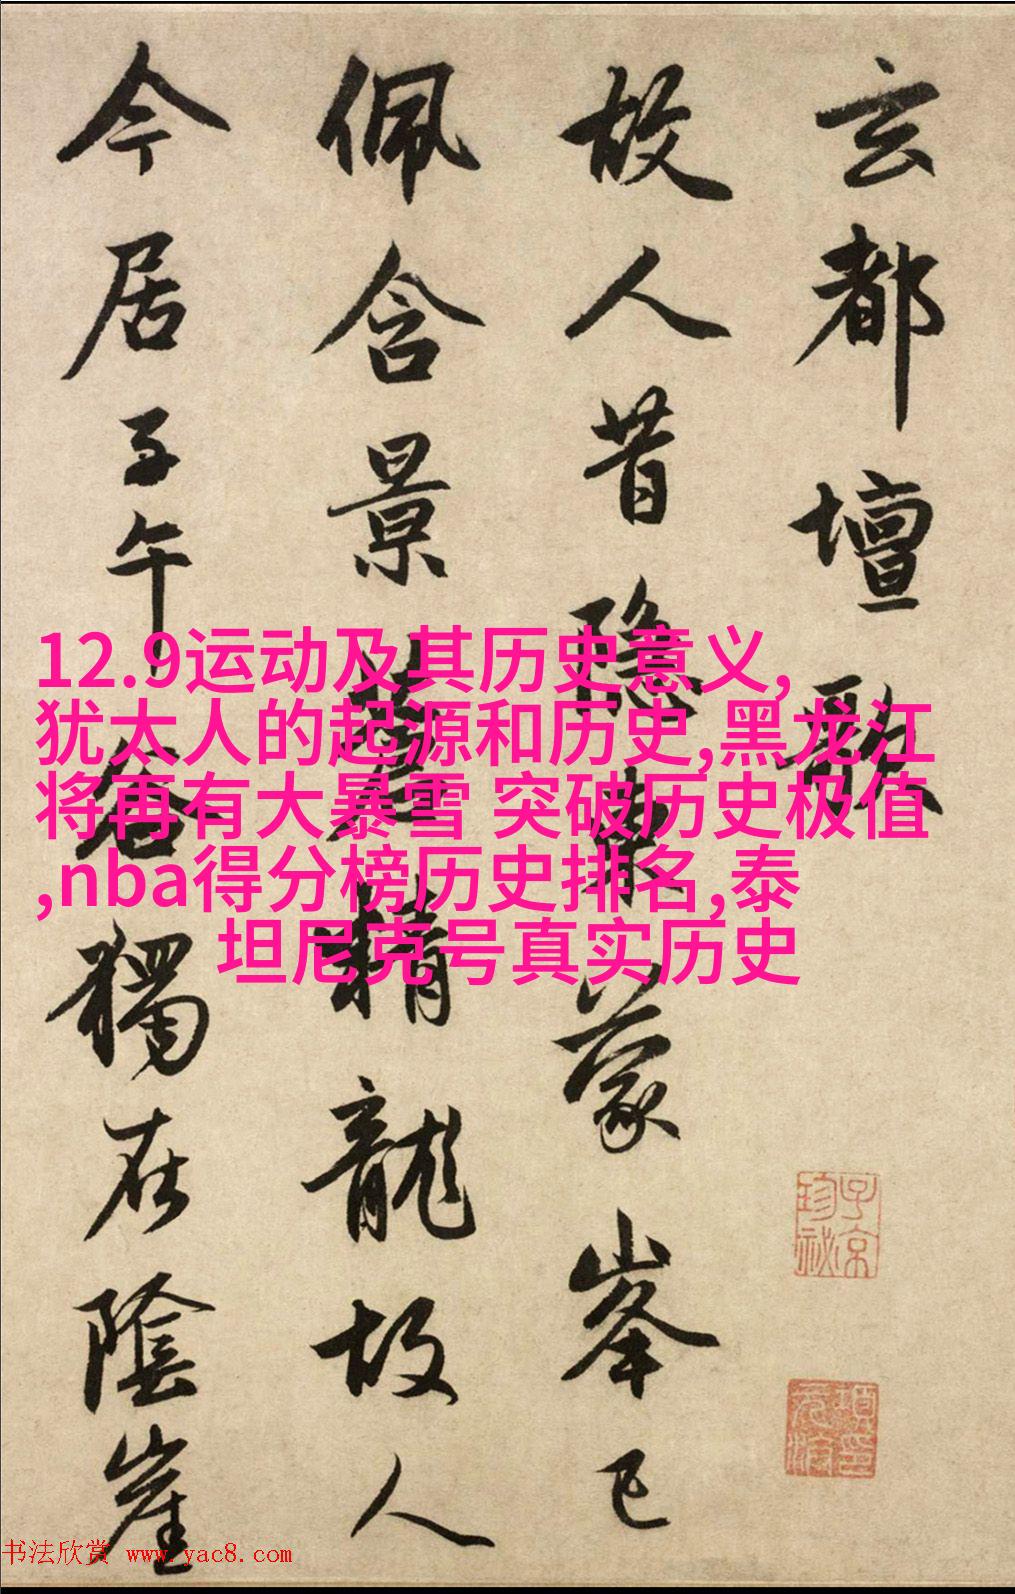 玄都壇歌
故人昔隱東蒙峯已
佩含景蒼精龍故人
今居子午谷獨在陰崖
12.9运动及其历史意义,
犹太人的起源和历史,黑龙江
将再有大暴雪 突破历史极值
,nba得分榜历史排名,泰
坦尼克号真实历史
子京
珍祕
书法欣赏 www.yac8.com